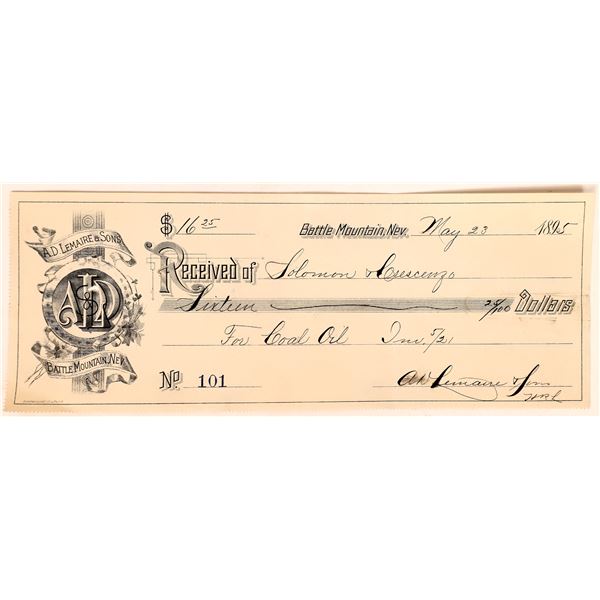 $ 16 25 Battle Mountain, Nev. May 23 1895
A.D. LEMAIRE & SONS
Received of Solomon & Crescenzo
ALD&S
Sixteen 25/100 Dollars
For Coal Oil Inv 5/21
BATTLE MOUNTAIN, NEV.
No. 101
A D Lemaire & Sons